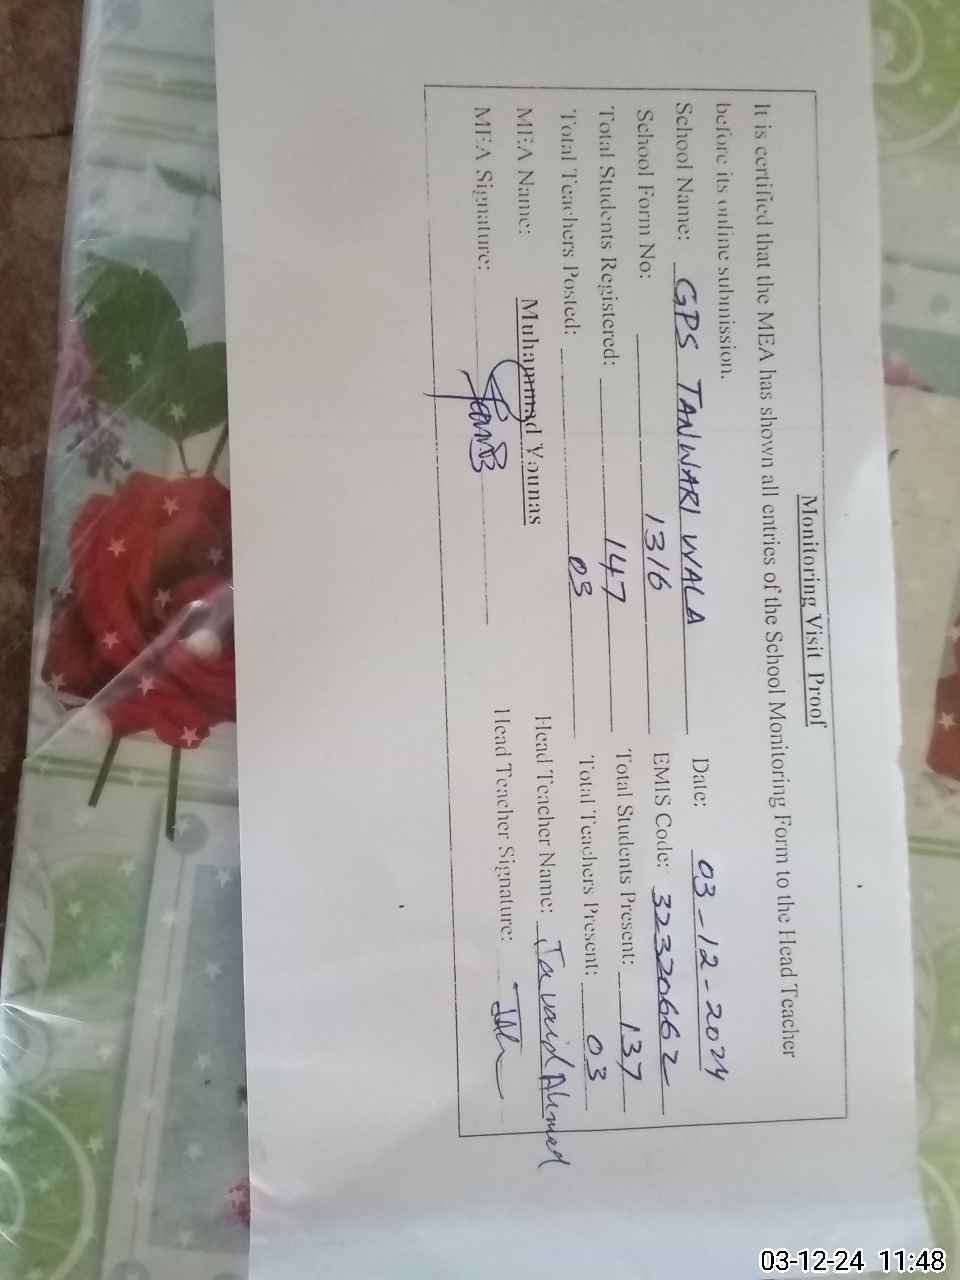 Monitoring Visit Proof
It is certified that the MEA has shown all entries of the School Monitoring Form to the Head Teacher
before its online submission.
School Name: GPS TANWARI WALA Date: 03-12-2024
School Form No: 1316 EMIS Code: 32320662
Total Students Registered: 147 Total Students Present: 137
Total Teachers Posted: 03 Total Teachers Present: 03
MEA Name: Muhammad Younas Head Teacher Name: Javaid Ahmad
MEA Signature: Head Teacher Signature:
03-12-24 11:48